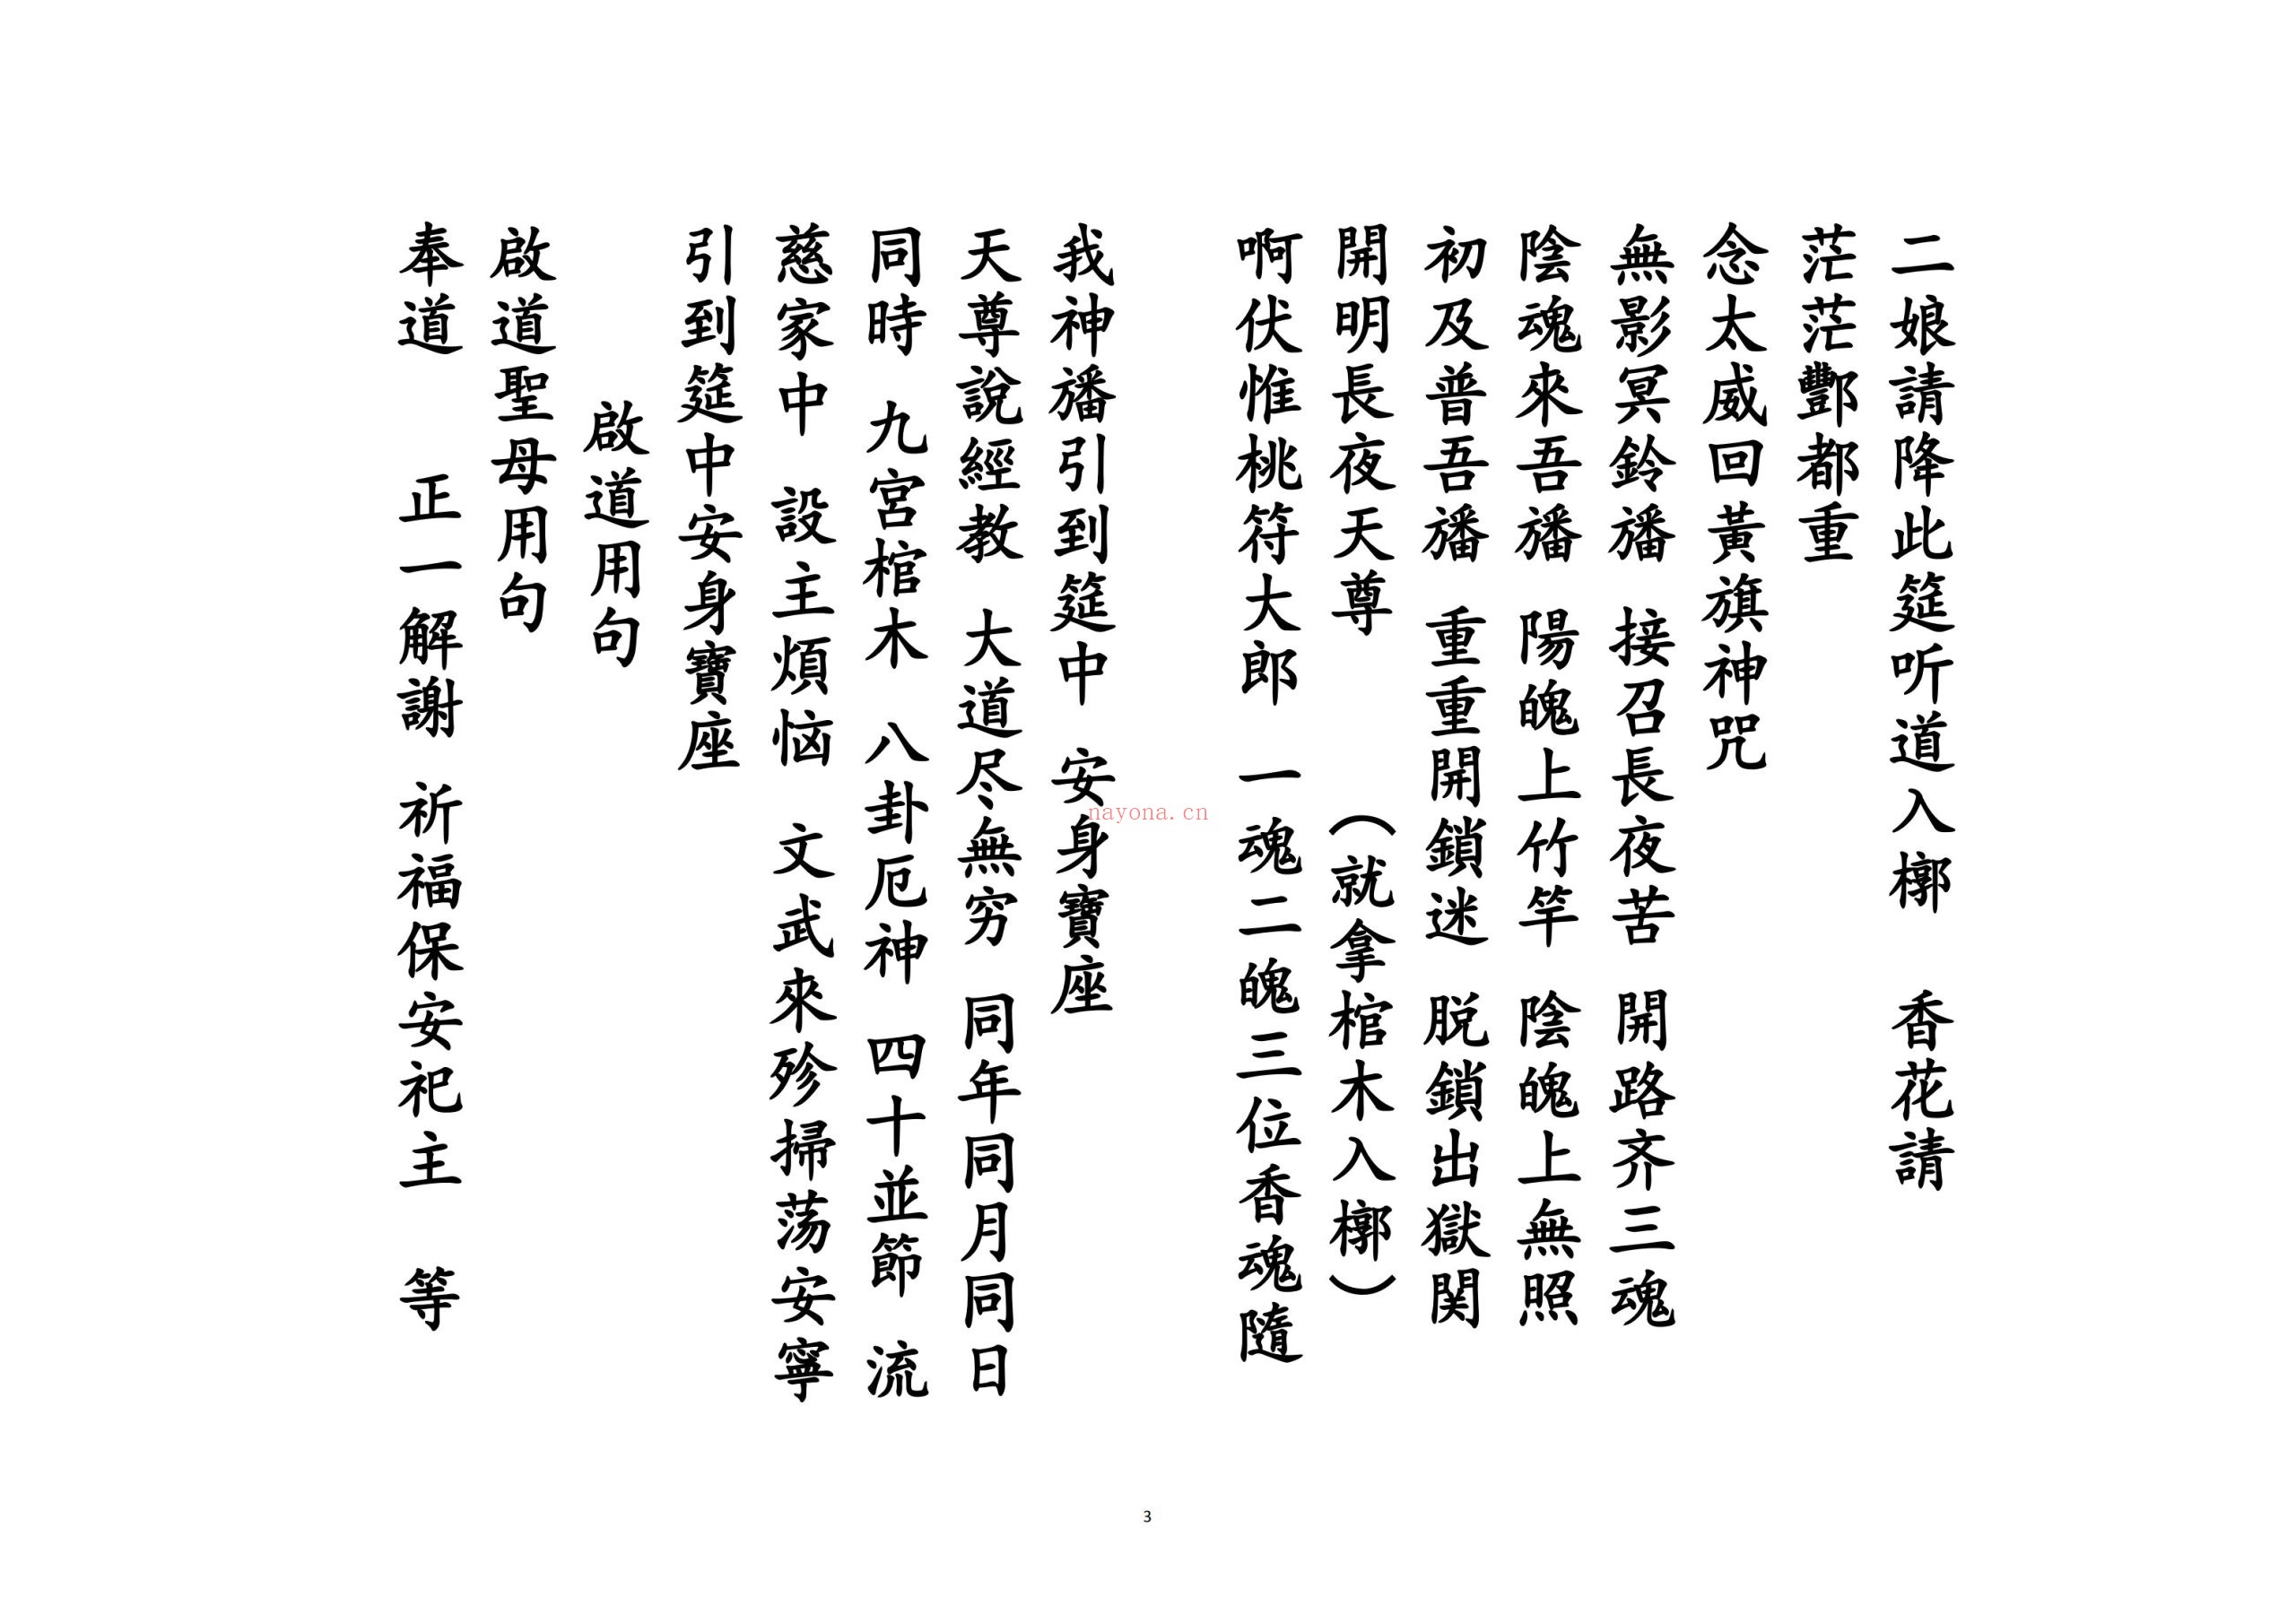 二娘請降此筵听道入槨　香花請
茫茫酆都重
念太威回黃旗神咒
無影冥鈴旛 接召長夜苦 開路齐三魂
陰魂來吾旛 陽魄上竹竿 陰魄上無照
初及普吾旛 重重開鎖迷 脱鎖出獄関
開明長夜天尊　　（就拿棺木入槨）
啊伏惟桃符大郎 一魂二魄三位香魂隨
我神旛引到筵中 安身寶座
天尊說經教 大道尽無穷 同年同月同日
同時 九宮棺木 八卦厄神 四十並節 流
慈家中 設主煩恼 文武來殄掃荡安寧
引到筵中安身寶座
啟道用句
啟道聖母用句
奉道　正一解謝 祈福保安祀主　等
nayona.cn
3